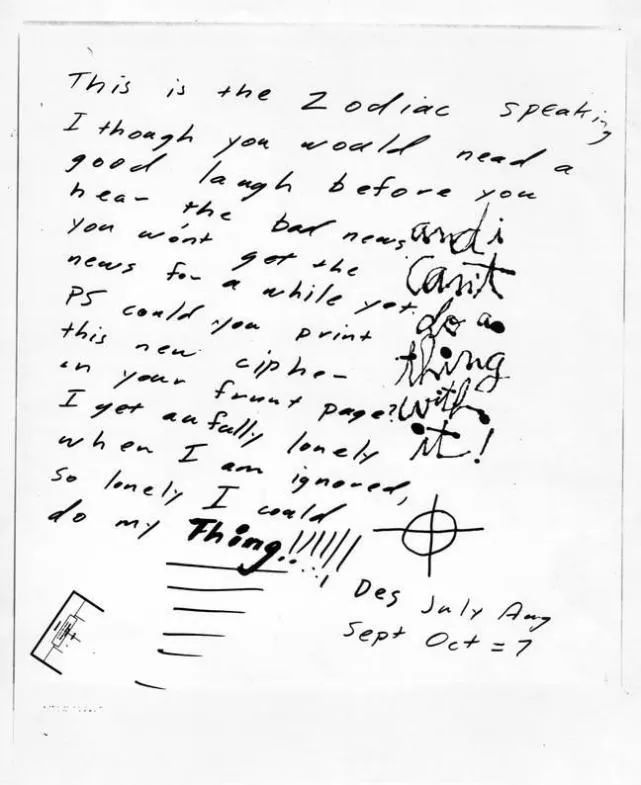 This is the Zodiac speaking
I though you would nead a
good laugh before you
hear the bad news
you won't get the
news for a while yet.
PS could you print
this new cipher
in your frunt page?
I get aufully lonely
when I am ignored,
so lonely I could
do my Thing..!!!!!!
and i
can't
do a
thing
with
it!
Des July Aug
Sept Oct = 7